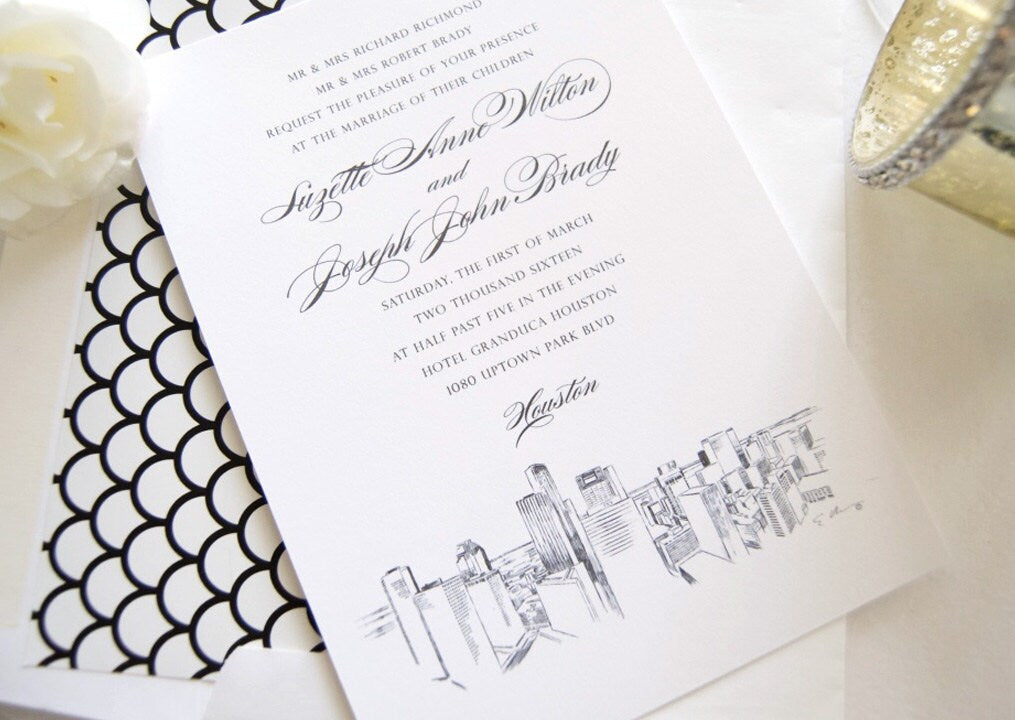 MR & MRS RICHARD RICHMOND
MR & MRS ROBERT BRADY
REQUEST THE PLEASURE OF YOUR PRESENCE
AT THE MARRIAGE OF THEIR CHILDREN
Suzette Anne Wilton
and
Joseph John Brady
SATURDAY, THE FIRST OF MARCH
TWO THOUSAND SIXTEEN
AT HALF PAST FIVE IN THE EVENING
HOTEL GRANDUCA HOUSTON
1080 UPTOWN PARK BLVD
Houston